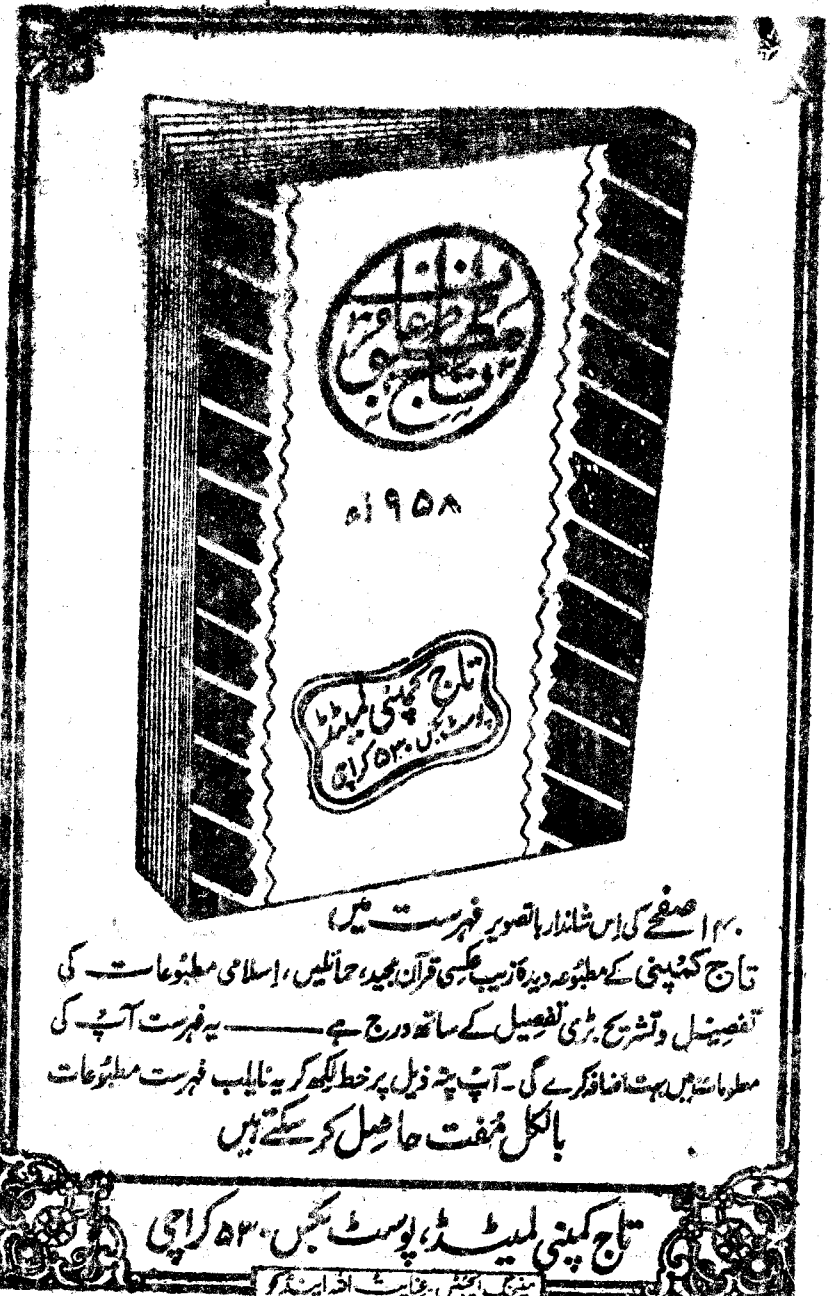 مطبوعات
تاج
۱۹۵۸ء
تاج کمپنی لمیٹڈ
پوسٹ بکس ۵۳۰ کراچی
۱۴۰ صفحے کی اِس شاندار باتصویر فہرست میں
تاج کمپنی کے مطبُوعہ دیدہ زیب عکسی قرآن مجید، حمائلیں، اِسلامی مطبُوعات کی
تفصِیل و تشریح بڑی تفصِیل کے ساتھ درج ہے ——— یہ فہرست آپ کی
معلومات میں بہت اضافہ کرے گی ۔ آپ پتہ ذیل پر خط لِکھ کر یہ نایاب فہرست مطبُوعات
بالکل مُفت حاصِل کر سکتے ہیں
تاج کمپنی لمیٹڈ، پوسٹ بکس ۵۳۰ کراچی
مینیجنگ ایجنٹس ۔ عنایت اللہ اینڈ کو